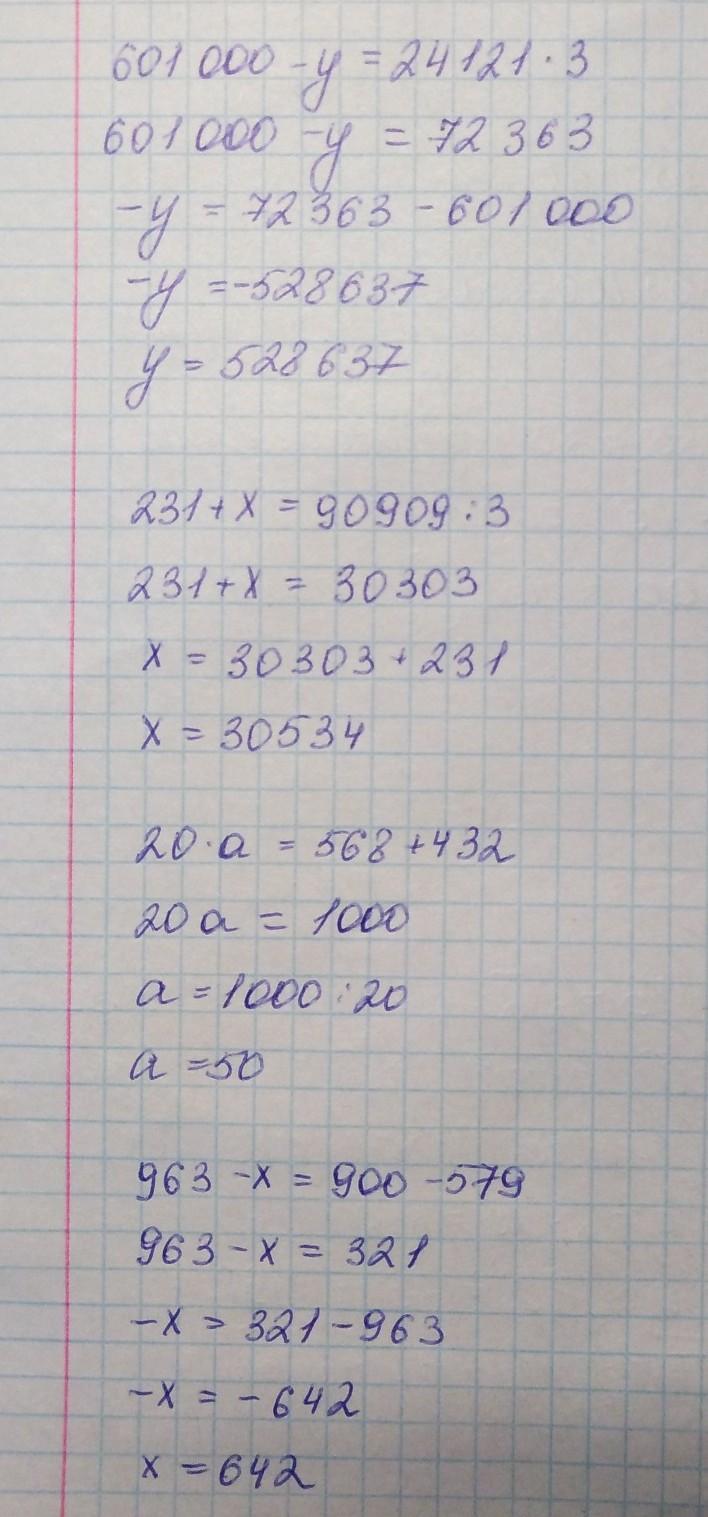 601 000 - y = 24121 · 3
601 000 - y = 72 363
-y = 72 363 - 601 000
-y = -528 637
y = 528 637
231 + x = 90909 : 3
231 + x = 30303
x = 30303 + 231
x = 30534
20 · a = 568 + 432
20 a = 1000
a = 1000 : 20
a = 50
963 - x = 900 - 579
963 - x = 321
-x = 321 - 963
-x = - 642
x = 642